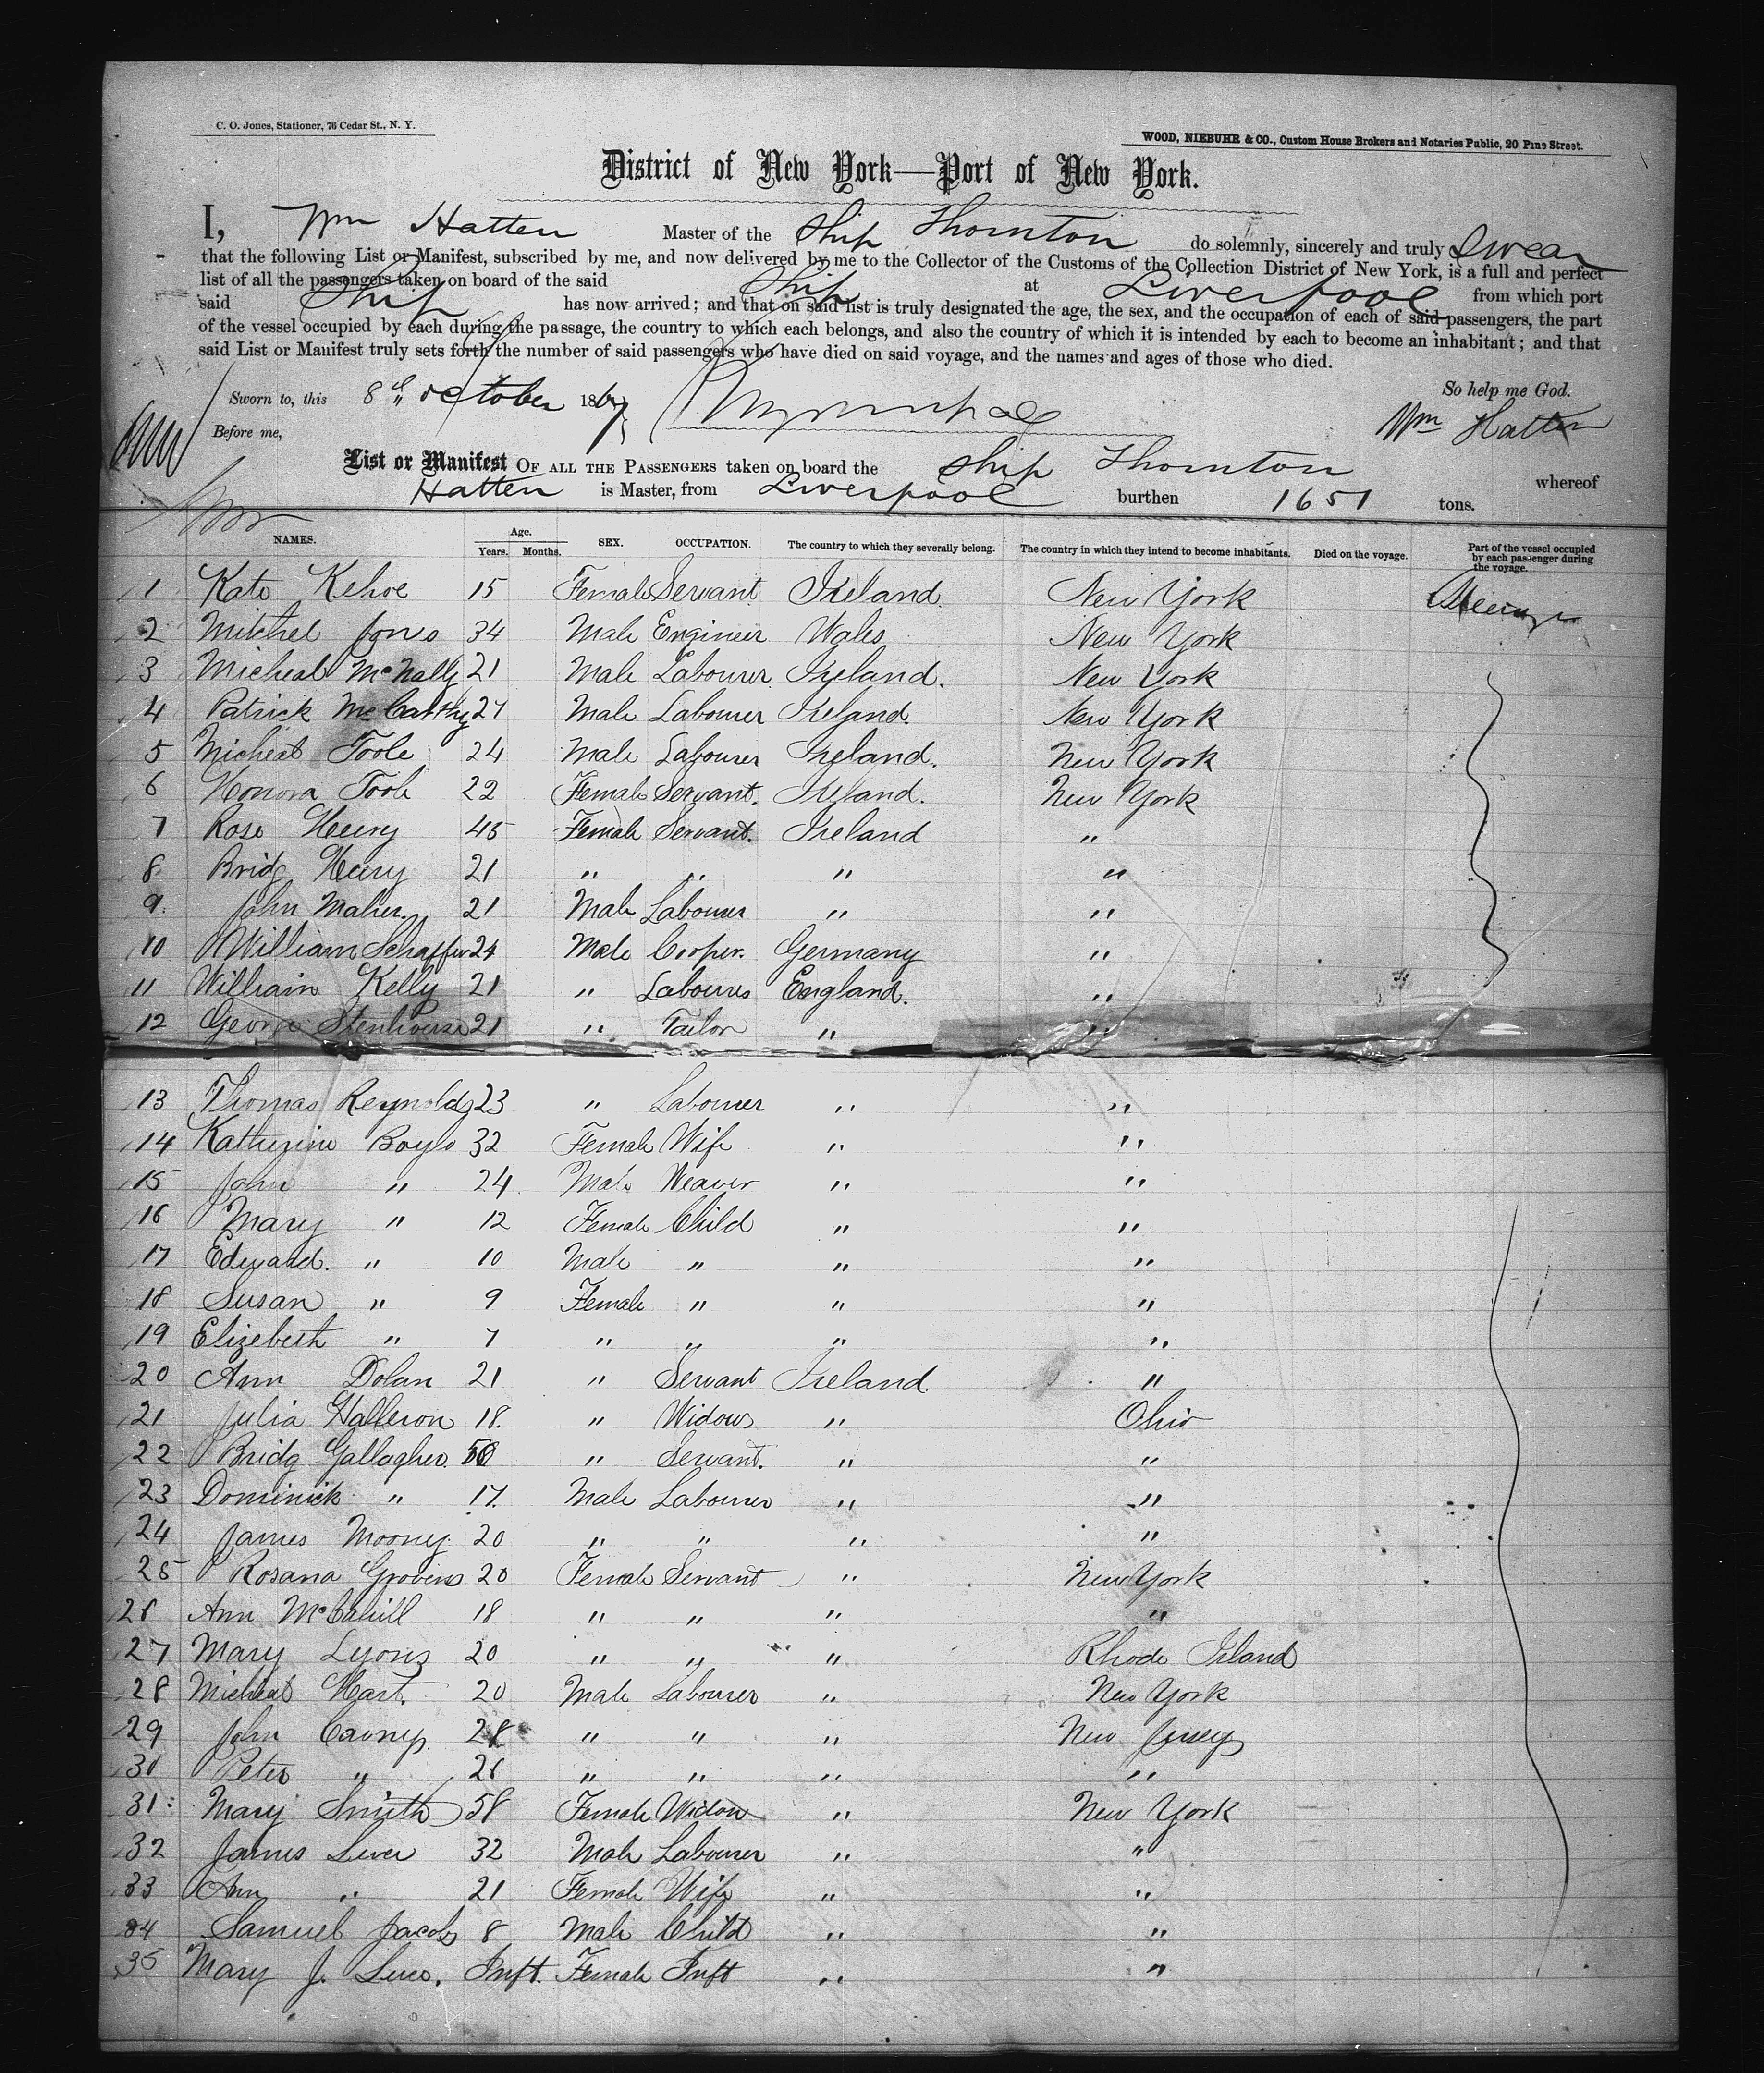 C. O. Jones, Stationer, 76 Cedar St., N. Y.
WOOD, NIEBUHR & CO., Custom House Brokers and Notaries Public, 20 Pine Street.
District of New York—Port of New York.
I, Wm Hatten Master of the Ship Thornton do solemnly, sincerely and truly Swear
that the following List or Manifest, subscribed by me, and now delivered by me to the Collector of the Customs of the Collection District of New York, is a full and perfect
list of all the passengers taken on board of the said Ship at Liverpool from which port
said Ship has now arrived; and that on said list is truly designated the age, the sex, and the occupation of each of said passengers, the part
of the vessel occupied by each during the passage, the country to which each belongs, and also the country of which it is intended by each to become an inhabitant; and that
said List or Manifest truly sets forth the number of said passengers who have died on said voyage, and the names and ages of those who died.
So help me God.
Sworn to, this 8th October 1867
Before me,
Wm Hatten
List or Manifest OF ALL THE PASSENGERS taken on board the Ship Thornton whereof
Hatten is Master, from Liverpool burthen 1651 tons.
NAMES. Age. Years. Months. SEX. OCCUPATION. The country to which they severally belong. The country in which they intend to become inhabitants. Died on the voyage. Part of the vessel occupied by each passenger during the voyage.
1 Kate Kehoe 15 Female Servant Ireland. New York Steerage
2 Mitchel Jones 34 Male Engineer Wales New York
3 Micheal McNally 21 Male Labourer Ireland. New York
4 Patrick McCarthy 27 Male Labourer Ireland. New York
5 Micheal Toole 24 Male Labourer Ireland. New York
6 Honora Toole 22 Female Servant. Ireland. New York
7 Rose Henry 45 Female Servant. Ireland "
8 Bridg Henry 21 " " " "
9 John Maher. 21 Male Labourer " "
10 William Schaffer 24 Male Cooper. Germany "
11 William Kelly 21 " Labourer England. "
12 George Stenhouse 21 " Tailor " "
13 Thomas Reynolds 23 " Labourer " "
14 Katherine Boyle 32 Female Wife " "
15 John " 24 Male Weaver " "
16 Mary " 12 Female Child " "
17 Edward. " 10 Male " " "
18 Susan " 9 Female " " "
19 Elizebeth " 7 " " " "
20 Ann Dolan 21 " Servant Ireland. "
21 Julia Halleron 18. " Widow " Ohio
22 Bridg Gallagher. 50 " Servant. " "
23 Dominick " 17. Male Labourer " "
24 James Mooney 20 " " " "
25 Rosana 20 Female Servant " New York
26 Ann McCahill 18 " " " "
27 Mary Lyons 20 " " " Rhode Island
28 Micheal Hart. 20 Male Labourer " New York
29 John 28 " " " New Jersey
30 Peter " 26 " " " "
31 Mary Smith 58 Female Widow " New York
32 James 32 Male Labourer " "
33 Ann " 21 Female Wife " "
34 Samuel Jacob 8 Male Child " "
35 Mary J. Inft. Female Inft " "